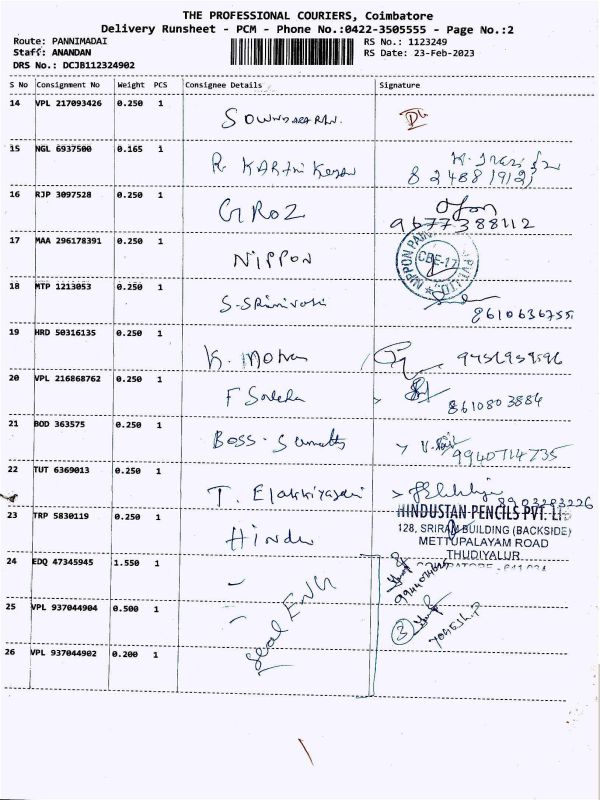 THE PROFESSIONAL COURIERS, Coimbatore
Delivery Runsheet - PCM - Phone No.:0422-3505555 - Page No.:2
Route: PANNIMADAI RS No.: 1123249
Staff: ANANDAN RS Date: 23-Feb-2023
DRS No.: DCJB112324902
S No Consignment No Weight PCS Consignee Details Signature
14 VPL 217093426 0.250 1
SOWNDARARAN.
15 NGL 6937500 0.165 1
R KARTHIKEYAN
16 RJP 3097528 0.250 1
GROZ
9677388112
17 MAA 296178391 0.250 1
NIPPON
CBE-17
18 MTP 1213053 0.250 1
S. Srinivasan
8610636755
19 HRD 50316135 0.250 1
K. Mohan
20 VPL 216868762 0.250 1
8610803884
21 BOD 363575 0.250 1
9940714735
22 TUT 6369013 0.250 1
8903203226
23 TRP 5830119 0.250 1
HINDUSTAN PENCILS PVT. LTD
128, SRIRAM BUILDING (BACKSIDE)
Hindu METTUPALAYAM ROAD
THUDIYALUR
24 EDQ 47345945 1.550 1
25 VPL 937044904 0.500 1
3
26 VPL 937044902 0.200 1